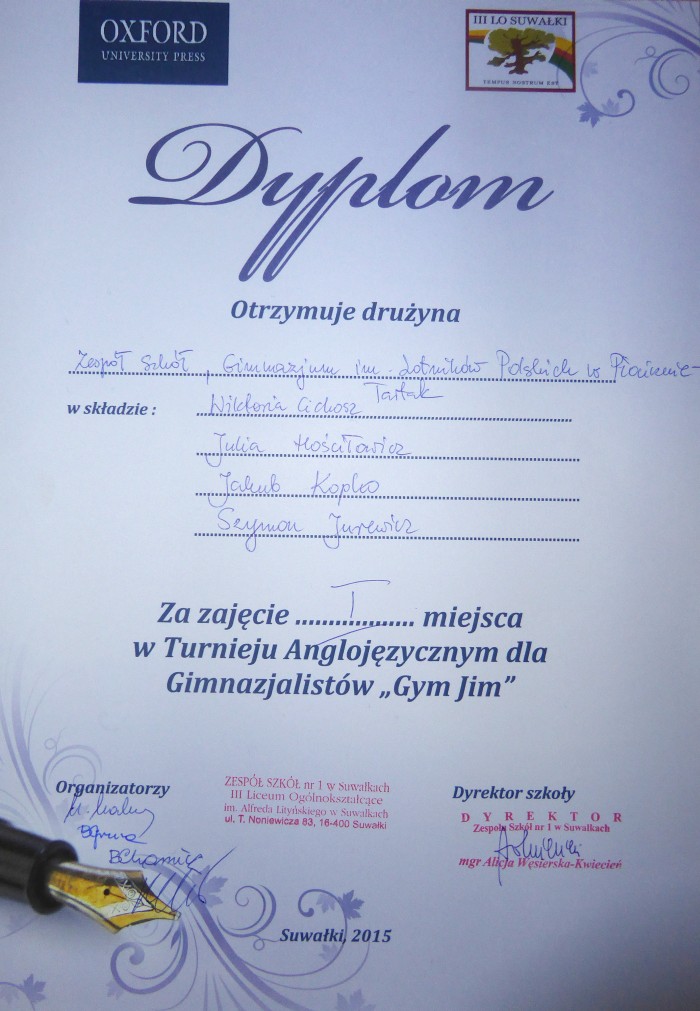 OXFORD
UNIVERSITY PRESS
III LO SUWAŁKI
TEMPUS NOSTRUM EST
Dyplom
Otrzymuje drużyna
Zespół Szkół, Gimnazjum im. Lotników Polskich w Płocicznie-
Tartak
w składzie :
Wiktoria Cichosz
Julia Mościłowicz
Jakub Kopko
Szymon Jurewicz
Za zajęcie ........I......... miejsca
w Turnieju Anglojęzycznym dla
Gimnazjalistów „Gym Jim”
Organizatorzy
ZESPÓŁ SZKÓŁ nr 1 w Suwałkach
III Liceum Ogólnokształcące
im. Alfreda Lityńskiego w Suwałkach
ul. T. Noniewicza 83, 16-400 Suwałki
Dyrektor szkoły
DYREKTOR
Zespołu Szkół nr 1 w Suwałkach
mgr Alicja Węsierska-Kwiecień
Suwałki, 2015